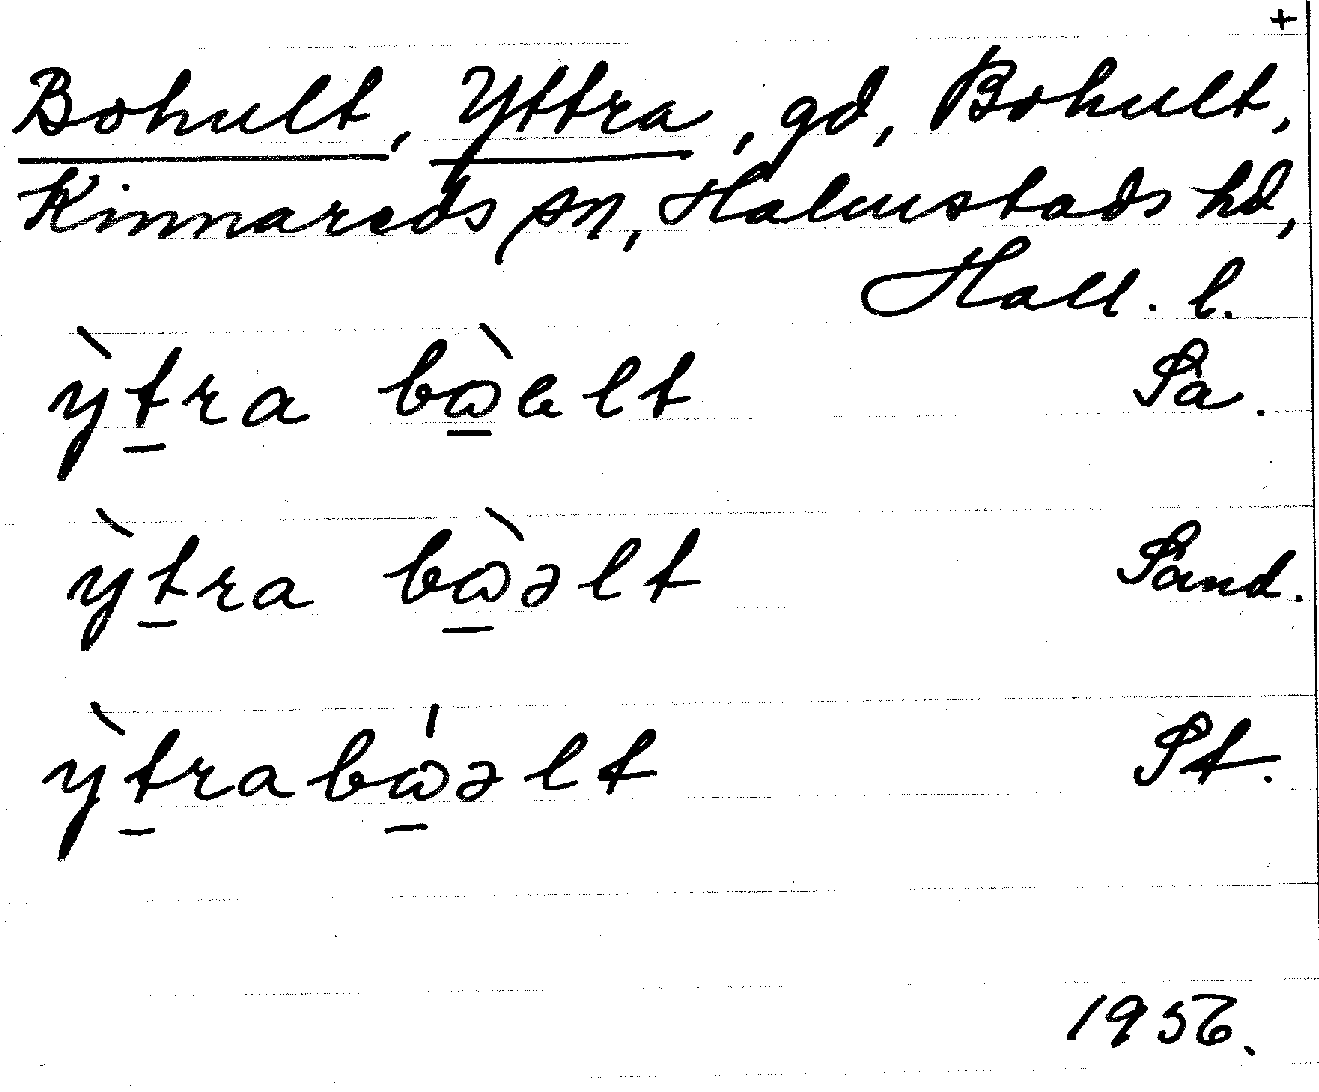 +
Bohult, Yttra, gd, Bohult,
Kinnareds sn, Halmstads hd,
Hall. l.
ỳt̠ra bɷ̠̀ɐlt Sa.
ỳt̠ra bɷ̠̀əlt Sand.
ỳt̠rabɷ̠́əlt St.
1956.